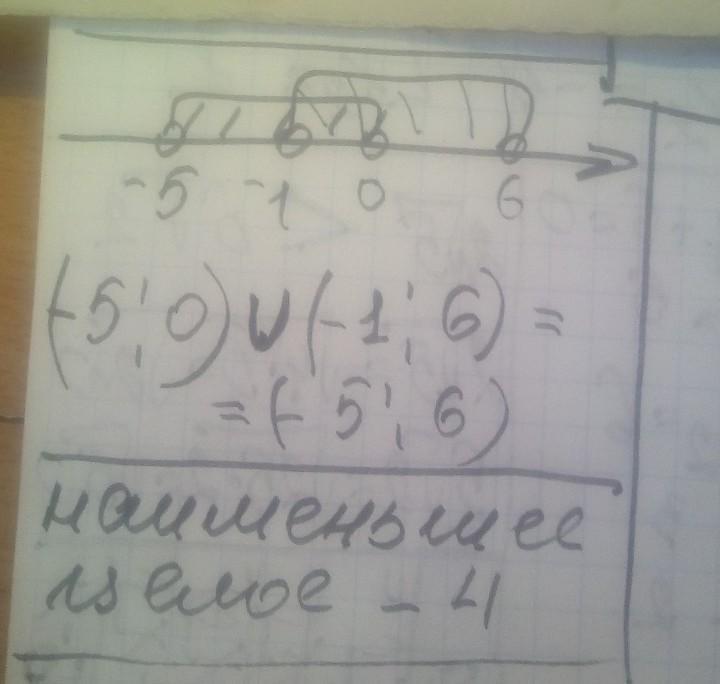 -5 -1 0 6
(-5; 0) ∪ (-1; 6) =
= (-5; 6)
наименьшее
целое -4